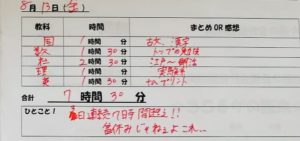 8月13日(金)
教科 時間 まとめOR感想
国 1時間 分 古文、漢文
数 1時間30分 トップの勉強
社 2時間 分 江戸〜明治
理 1時間 分
英 1時間30分 プリント
合計 7時間30分
ひとこと! 連続7時間超え!!
盆休みじゃねぇよこれ…